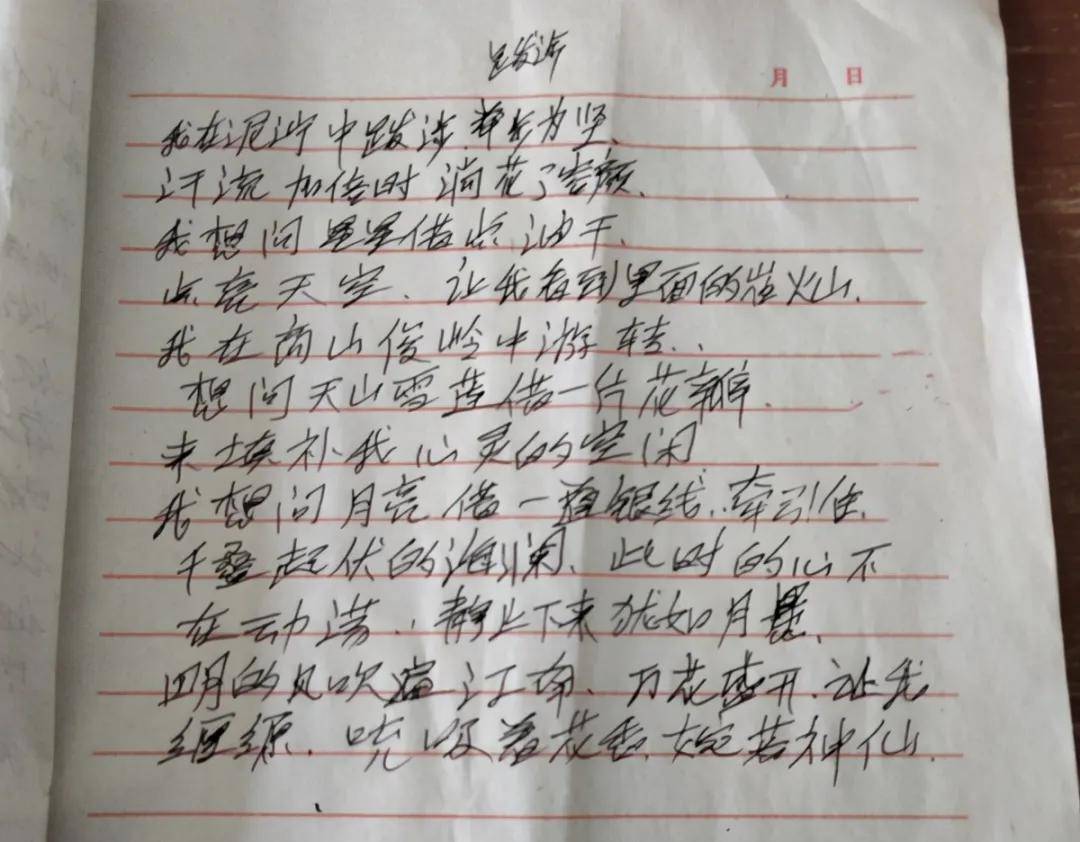 月 日
我在泥泞中跋涉.举步为坚、
汗流加倍时淌花了容颜、
我想问星星借点油干、
点亮天空、让我看到里面的岩火山.
我在高山俊岭中游转、、
想问天山雪莲借一片花瓣.
来填补我心灵的空闲
我想问月亮借一道银线、牵引住、
千叠起伏的波澜、此时的心不
在动荡、静止下来犹如月悬、
四月的风吹遍江南、万花盛开.让我
缠绵、吮吸着花香.婉若神仙.